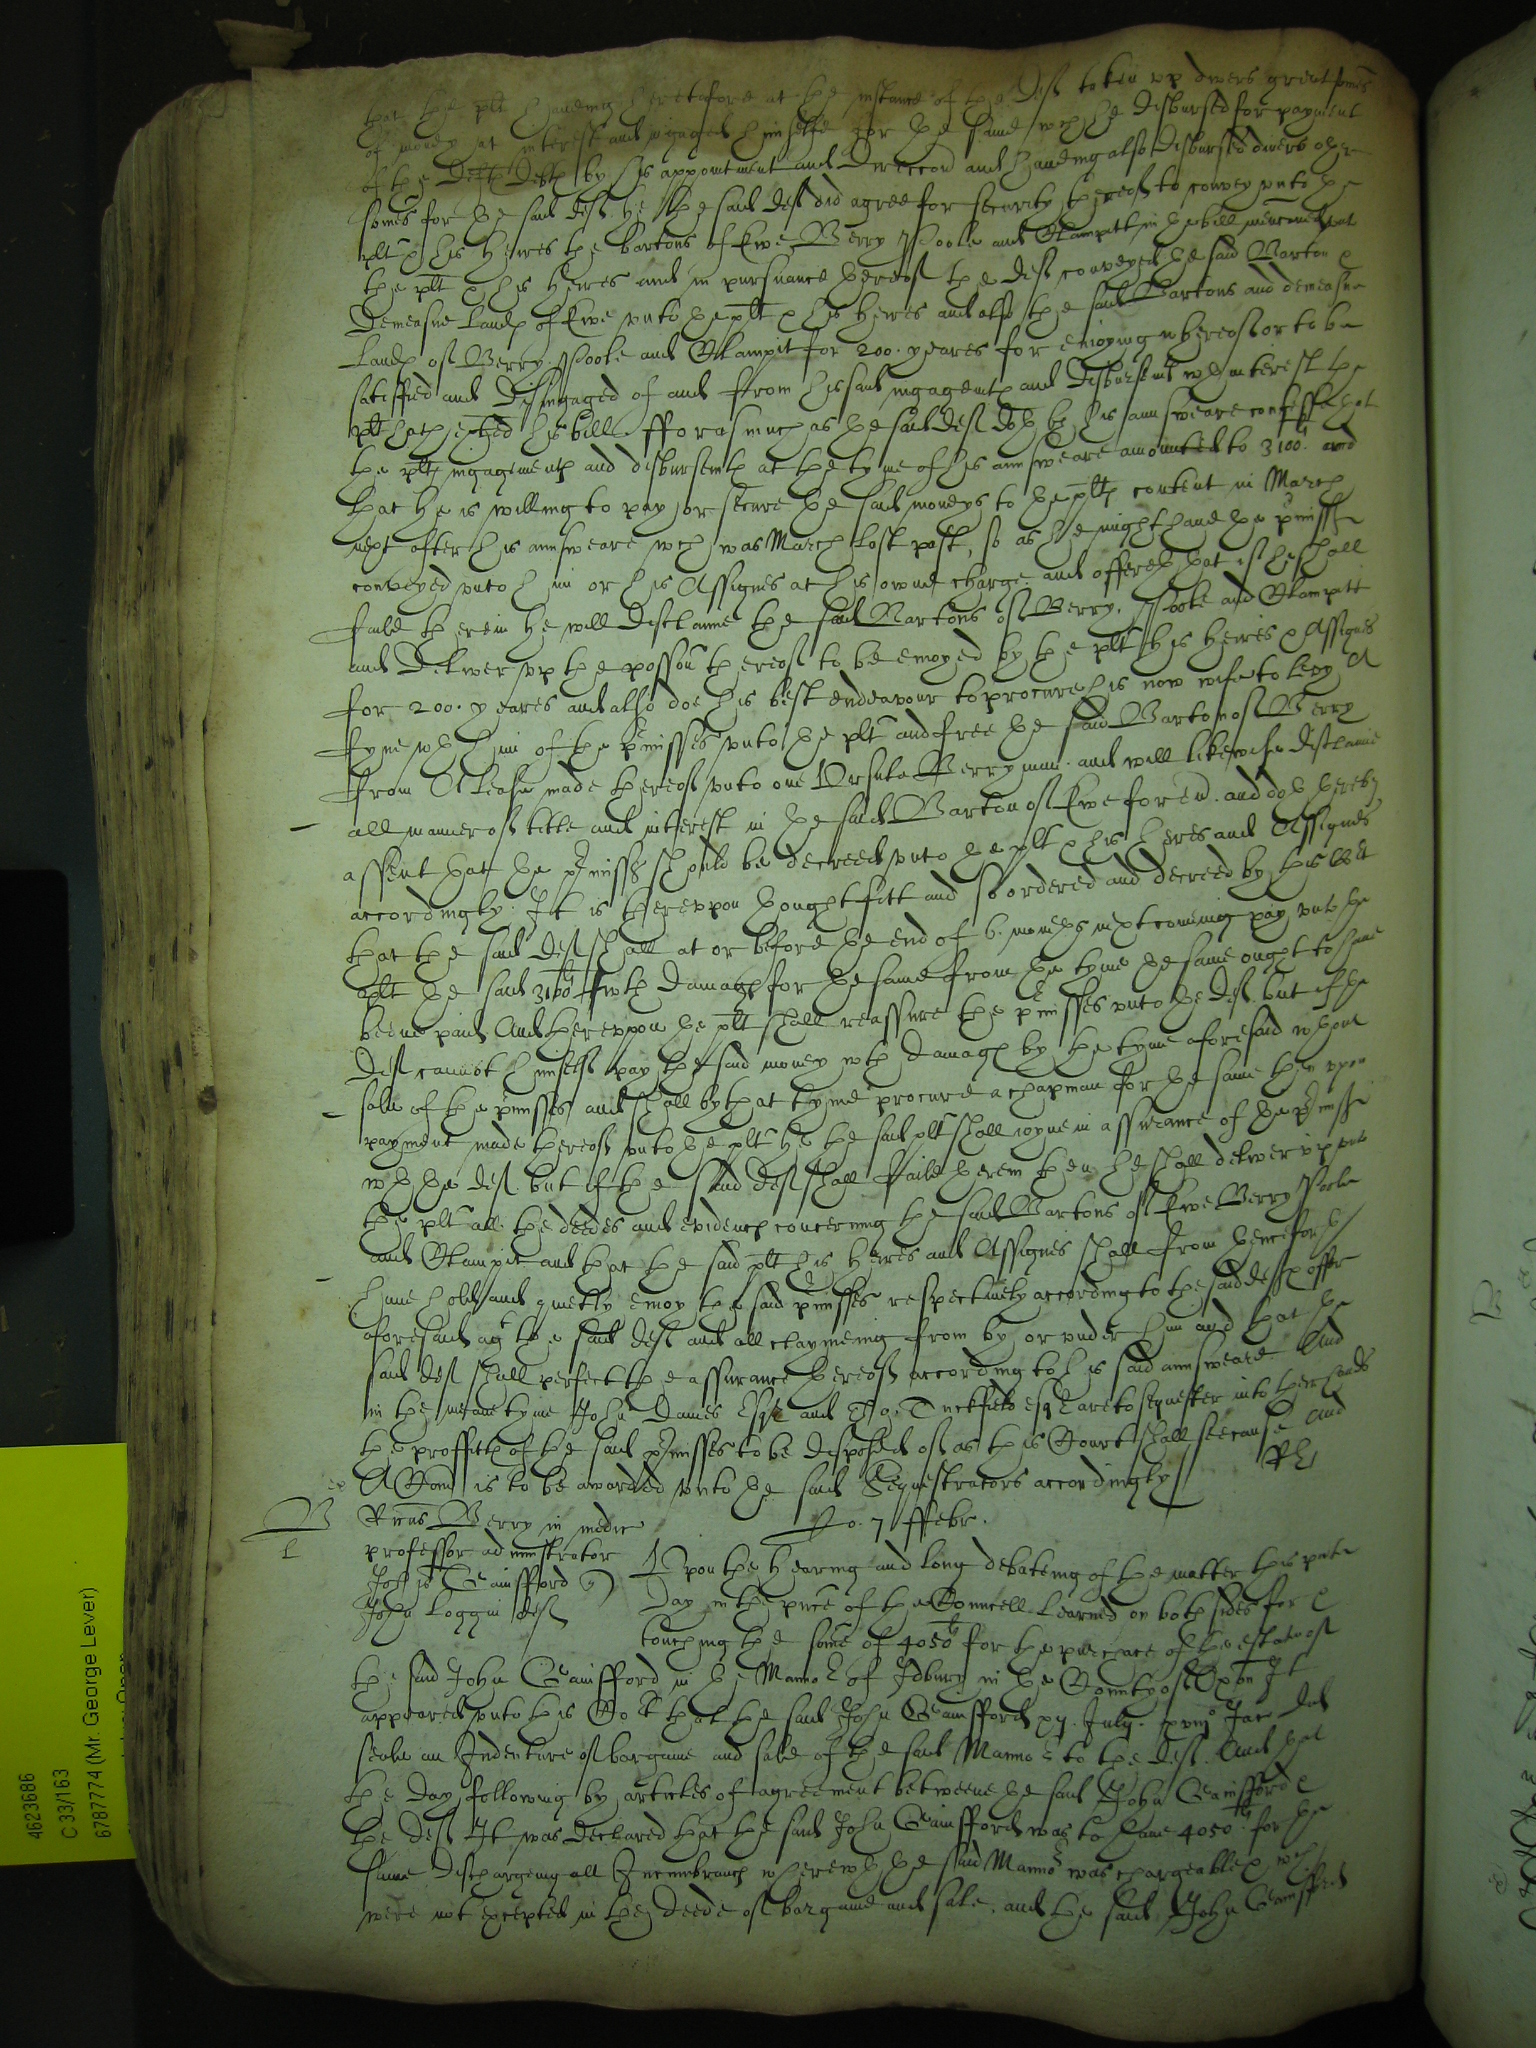 that the plt haveing heretofore at the instance of the deft taken vp divers great somes
of money at interest and ingaged himselfe for the same wch he disbursed for payment
of the defts debts by his appointment and direccon and haveing also disbursed divers other
somes for the said deft he the said deft did agree for security thereof to convey vnto the
plt & his heires the bartons of Ewe Berry Poole and Stampitt in the bill menconed vnto
the plt & his heires and in pursuance thereof the deft conveyed the said Barton &
demeasne lands of Ewe vnto the plt & his heires and also the said Bartons and demeasne
lands of Berry Poole and Stampit for 200. yeares for enioying whereof or to be
satisfied and disingaged of and from his said ingagemts and disbursmts wth interest the
plt hath exhibited his bill. fforasmuch as the said deft doth by his answeare confesse that
the plts ingagements and disbursemts at the tyme of his answeare amounted to 3100l. and
that he is willing to pay or secure the said moneys to the plts content in March
next after his answeare wch was March last past, so as he might have the pmisses
conveyed vnto him or his Assignes at his owne charge and offereth that if he shall
faile therein he will disclaime the said Bartons of Berry. Poole and Stampitt
and deliver vp the possion thereof to be enioyed by the plt his heires & Assignes
for 200. yeares and also doe his best endeavour to procure his now wife to levy a
fyne wth him of the pmisses vnto the plt and free the said Barton of Berry
from a lease made thereof vnto one Vrsula Berryman. and will likewise disclaime
all manner of title and interest in the said Barton of Ewe for ever. and doth thereby
assent that the pmisses should be decreed vnto the plt & his heires and Assignes
accordingly. It is therevpon thought fitt and so ordered and decreed by this Cort
that the said deft shall at or before the end of 6. moneths next comeing pay vnto the
plt the said 3100l wth damages for the same from the tyme the same ought to have
beene paid And therevpon the plt shall reassure the pmisses vnto the deft. but if the
deft cannot himselfe pay the said money wth damages by the tyme aforesaid wthout
sale of the pmisses and shall by that tyme procure a chapman for the same then vpon
payment made thereof vnto the plt he the said plt shall ioyne in assurance of the pmisses
wth the deft but if the said deft shall faile therein then he shall deliver vp vnto
the plt all the deedes and evidences concerning the said Bartons of Ewe Berry Poole
and Stampit and that the said plt his heires and Assignes shall from henceforth
have hold and quietly enioy the said pmisses respectively according to the said defts offer
aforesaid agt the said deft and all claymeing from by or vnder him and that the
said deft shall perfect the assurance thereof according to his said answeare And
in the meane tyme John Davies Esqr and Tuckfield esqr are to sequester into their hands
the proffitts of the said pmisses to be disposed of as this Court shall see cause And
A Comn is to be awarded vnto the said Sequestrators accordingly
B
Ricus Berry in medic
professor administrator
Johis Gainsford qr
John Loggin deft
Jo. 7 ffebr.
Vpon the hearing and long debateing of the matter this pnte
day in the pnce of the Councell learned on both sides for &
touching the some of 4050l for the purchase of the estate of
the said John Gainsford in the Mannor of Idbury in the County of Oxon It
appeared vnto this Cort that the said John Gainsford July. Jac did
seale an Indenture of bargaine and sale of the said Mannor to the deft. And that
the day following by articles of agreement betweene the said John Gainsford &
the deft It was declared that the said John Gainsford was to have 4050l. for the
same dischargeing all Incumbrances wherewth the said Mannor was chargeable & wch
were not excepted in the deede of bargaine and sale. and the said John Gainsford
4623686
C 33/163
6787774 (Mr. George Lever)